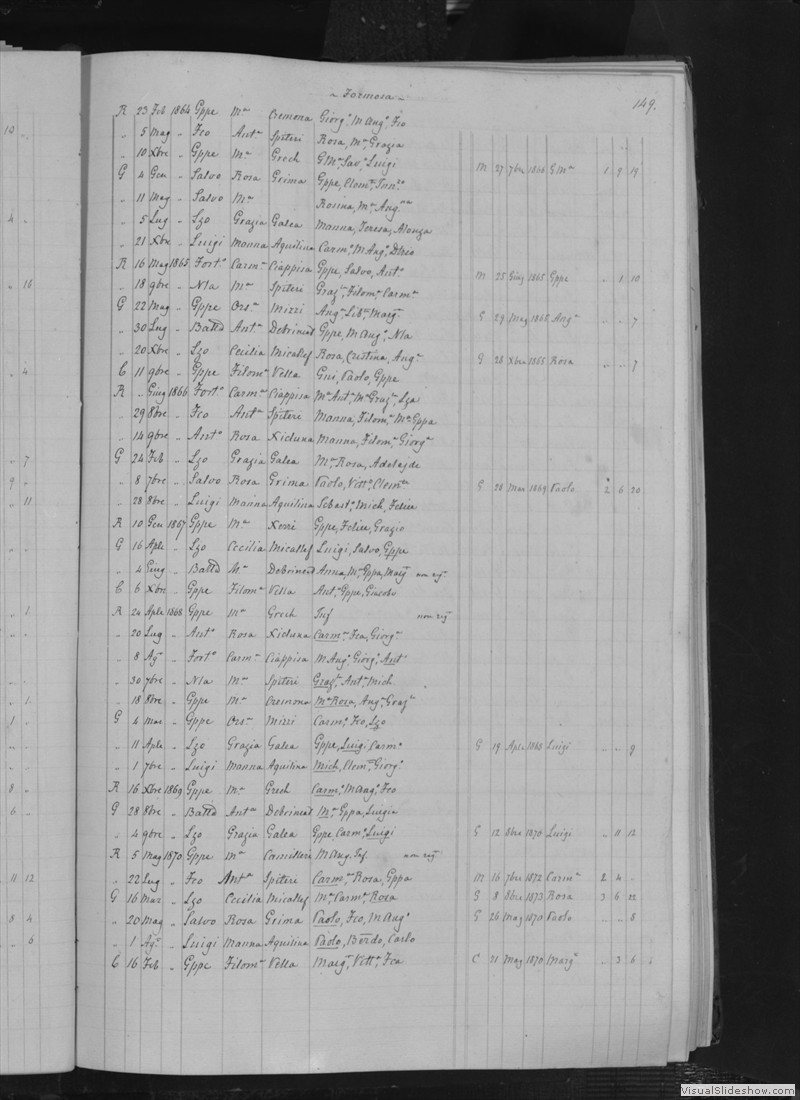 Formosa
149.
R 23 Feb 1864 Gppe Mª Cremona Giorgº, M Angº, Fco
19 „ 5 Mag „ Fco Antª Spiteri Rosa, Mª, Grazia
„ 10 Xbre „ Gppe Mª Grech GMª, Savº, Luigi M 27 7bre 1866 GMª 1 9 19
G 4 Gen „ Salvo Rosa Grima Gppe, Clemte
„ 11 Mag „ Salvo Mª Rosina, Mª, Ang
4 „ 5 Lug „ Lzo Grazia Galea Manna, Teresa, Alonza
„ 21 Xbre „ Luigi Manna Aquilina Carmº, M Angº
R 16 Mag 1865 Fortº Carmª Ciappisa Gppe, Salvo, Antº M 25 Giug 1865 Gppe „ 1 10
„ 16 „ 18 9bre „ Nla Mª Spiteri Grazª, Filomª, Carmª
G 22 Mag „ Gppe Orsª Mizzi Angª, Libª, Margª G 29 Mag 1865 Angª „ „ 7
„ 30 Lug „ Battª Antª Debrincat Gppe, M Angº, Nla
„ 20 Xbre „ Lzo Cecilia Micallef Rosa, Cristina, Angª G 28 Xbre 1865 Rosa „ „ 7
„ 4 C 11 9bre „ Gppe Filomª Vella Gui, Paolo, Gppe
R „ Giug 1866 Fortº Carmª Ciappisa Mª Antª, Mª Grazª, Lza
„ 29 8bre „ Fco Antª Spiteri Manna, Filomª, Mª Gppa
„ 14 9bre „ Antº Rosa Xicluna Manna, Filomª, Giorgª
„ 7 G 24 Feb „ Lzo Grazia Galea Mª, Rosa, Adelajde
9 „ „ 8 7bre „ Salvo Rosa Grima Paolo, Vittº, Clemte G 28 Mar 1869 Paolo 2 6 20
„ 11 „ 28 8bre „ Luigi Manna Aquilina Sebastº, Mich, Felice
R 10 Gen 1867 Gppe Mª Xerri Gppe, Felice, Grazio
G 16 Aple „ Lzo Cecilia Micallef Luigi, Salvo, Gppe
„ 4 Giug „ Battª Mª Debrincat Anna, Mª Gppa, Marg non reg
C 6 Xbre „ Gppe Filomª Vella Antº, Gppe, Giacobo
„ 1 R 24 Aple 1868 Gppe Mª Grech Inf non reg
„ 20 Lug „ Antº Rosa Xicluna Carmª, Fca, Giorgª
„ 8 Agº „ Fortº Carmª Ciappisa M Angº, Giorgº, Antº
„ 30 7bre „ Nla Mª Spiteri Grazª, Antº, Mich
„ 1 „ 18 8bre „ Gppe Mª Cremona Mª Rosa, Angª, Grazª
1 „ G 4 Mar „ Gppe Orsª Mizzi Carmº, Fco, Lzo
„ 11 Aple „ Lzo Grazia Galea Gppe, Luigi, Carmº G 19 Aple 1868 Luigi „ „ 9
„ 1 7bre „ Luigi Manna Aquilina Mich, Clemte, Giorgº
8 „ R 16 Xbre 1869 Gppe Mª Grech Carmº, M Angº, Fco
6 „ G 28 8bre „ Battª Antª Debrincat Mª, Gppa, Luigia
„ 4 9bre „ Lzo Grazia Galea Gppe, Carmº, Luigi G 12 8bre 1870 Luigi „ 11 12
R 5 Mag 1870 Gppe Mª Camilleri M Ang. Inf. non reg
11 12 „ 22 Lug „ Fco Antª Spiteri Carmª, Rosa, Gppa M 16 7bre 1872 Carmª 2 4 „
G 16 Mar „ Lzo Cecilia Micallef Mª, Carmª, Rosa G 8 8bre 1873 Rosa 3 6 22
8 4 „ 20 Mag „ Salvo Rosa Grima Paolo, Fco, M Angº G 26 Mag 1870 Paolo „ „ 8
„ 6 „ 1 Agº „ Luigi Manna Aquilina Paolo, Berdo, Carlo
C 16 Feb „ Gppe Filomª Vella Margª, Vittª, Fca C 21 Mag 1870 Margª „ 3 6
VisualSlideshow.com